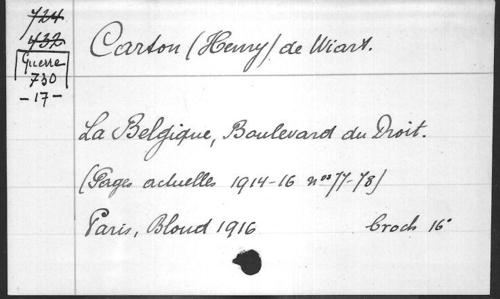 724
432
Guerre
730
-17-
Carton (Henry) de Wiart.
La Belgique, Boulevard du Droit.
(Pages actuelles 1914-16 nos 77-78)
Paris, Bloud 1916 broch 16°